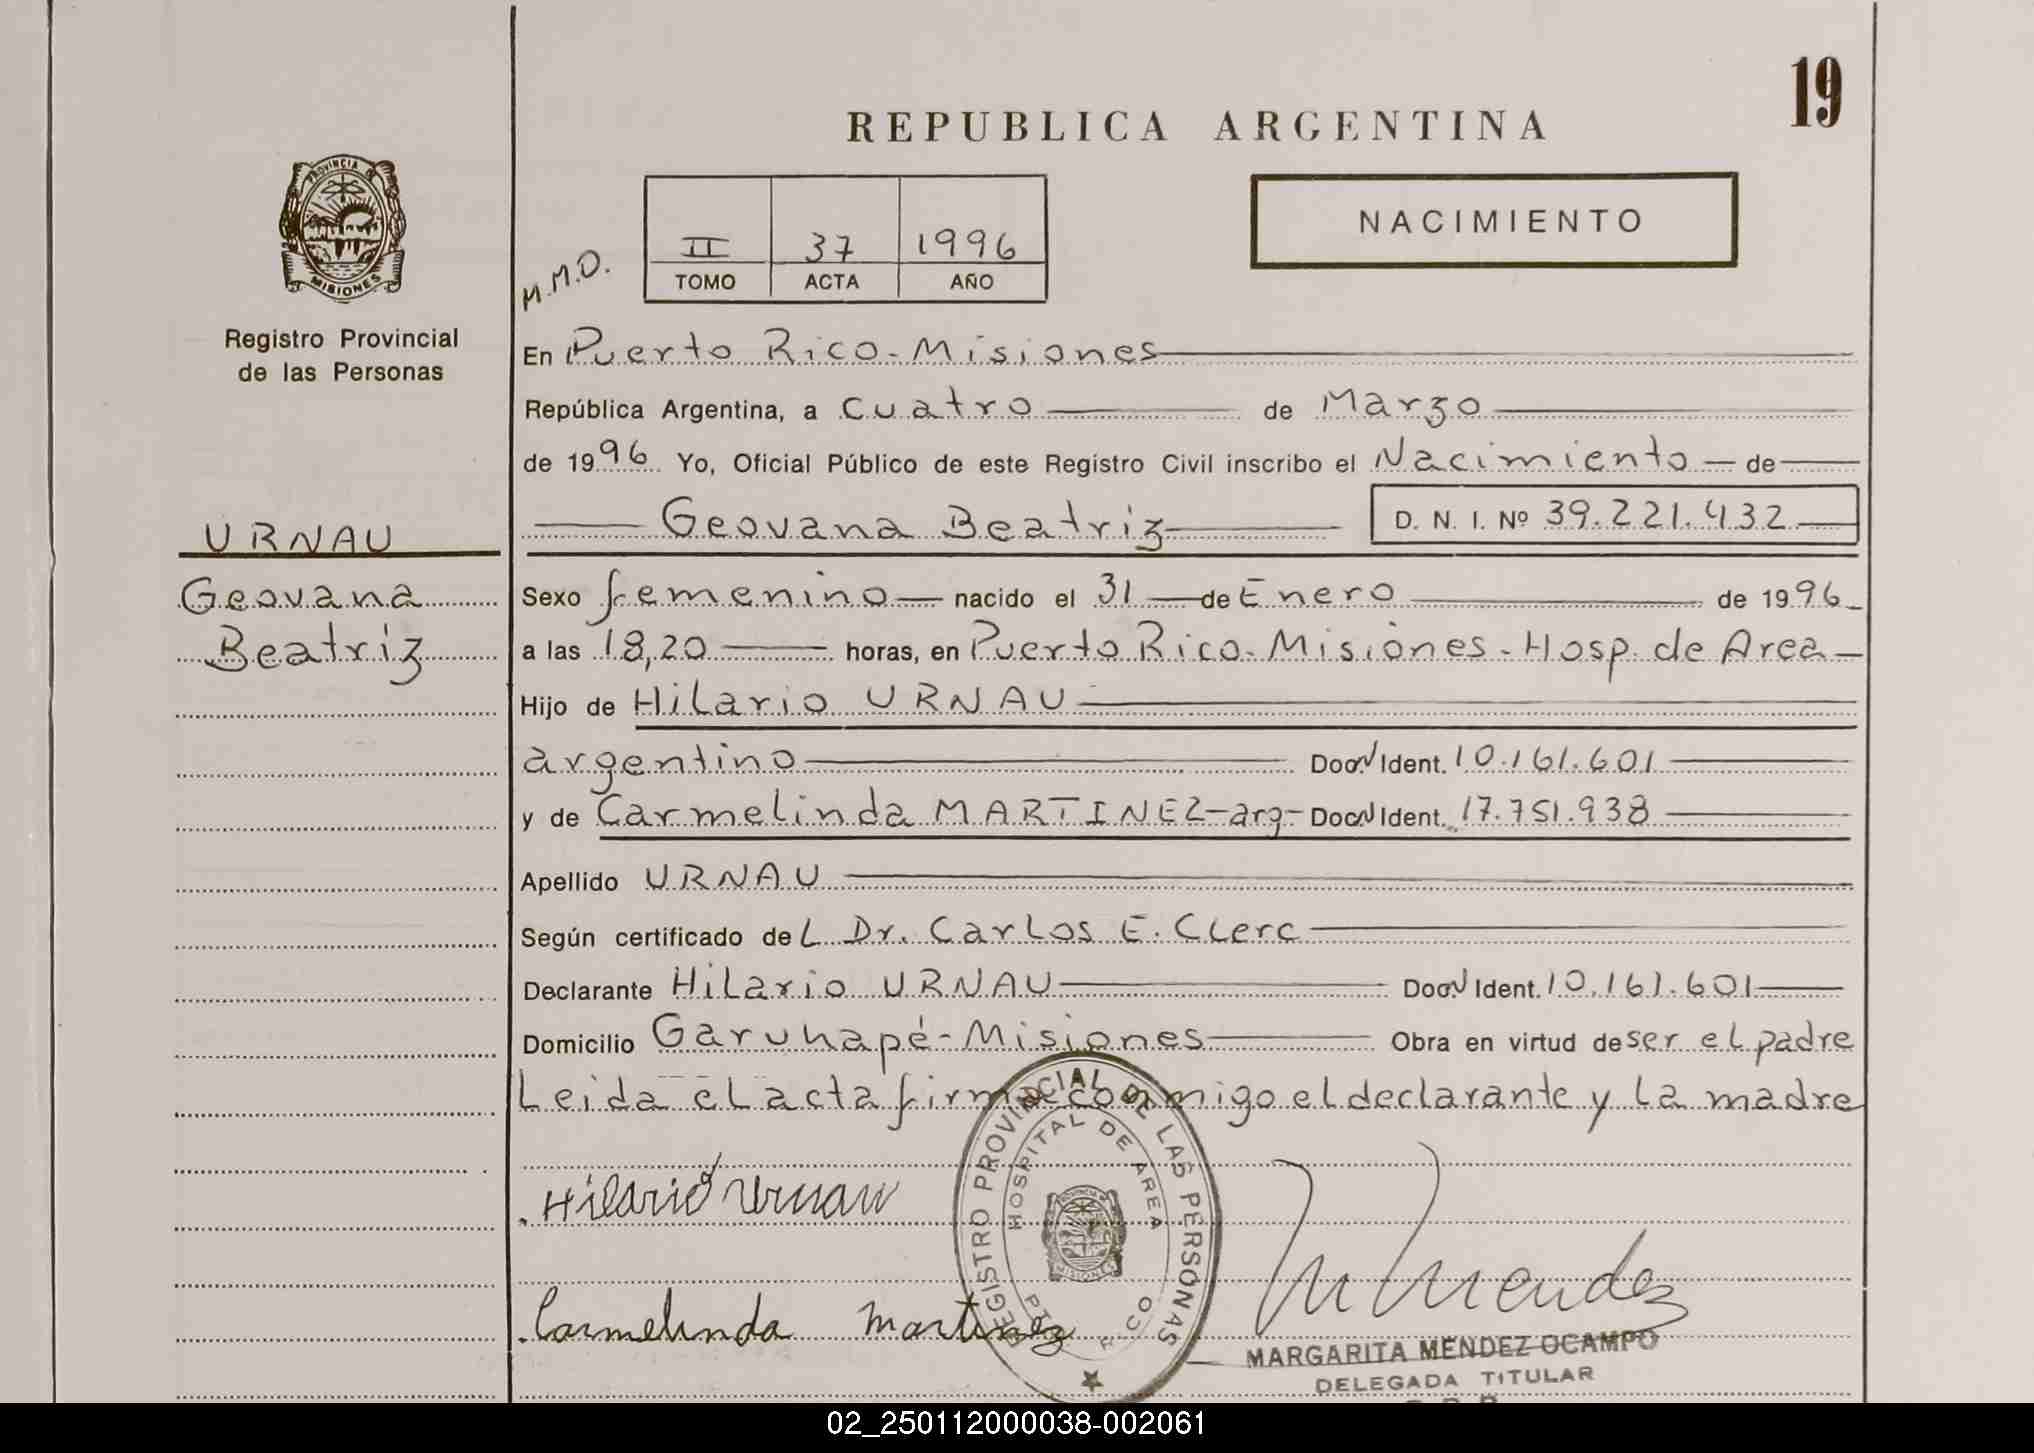 19
REPUBLICA ARGENTINA
PROVINCIA DE
MISIONES
Registro Provincial
de las Personas
NACIMIENTO
M.M.O.
II 37 1996
TOMO ACTA AÑO
En Puerto Rico-Misiones
República Argentina, a cuatro de Marzo
de 1996 Yo, Oficial Público de este Registro Civil inscribo el Nacimiento de
Geovana Beatriz D. N. I. Nº 39.221.432
URNAU
Geovana
Beatriz
Sexo femenino nacido el 31 de Enero de 1996
a las 18,20 horas, en Puerto Rico-Misiones-Hosp. de Area
Hijo de Hilario URNAU
argentino Doc. Ident. 10.161.601
y de Carmelinda MARTINEZ-arg- Doc. Ident. 17.751.938
Apellido URNAU
Según certificado del Dr. Carlos E. Clerc
Declarante Hilario URNAU Doc. Ident. 10.161.601
Domicilio Garuhapé-Misiones Obra en virtud de ser el padre
Leida el acta firma conmigo el declarante y la madre
REGISTRO PROVINCIAL DE LAS PERSONAS
HOSPITAL DE AREA
PTO. RICO
MISIONES
Hilario Urnau
Carmelinda Martinez
M Mendez
MARGARITA MENDEZ OCAMPO
DELEGADA TITULAR
02_250112000038-002061